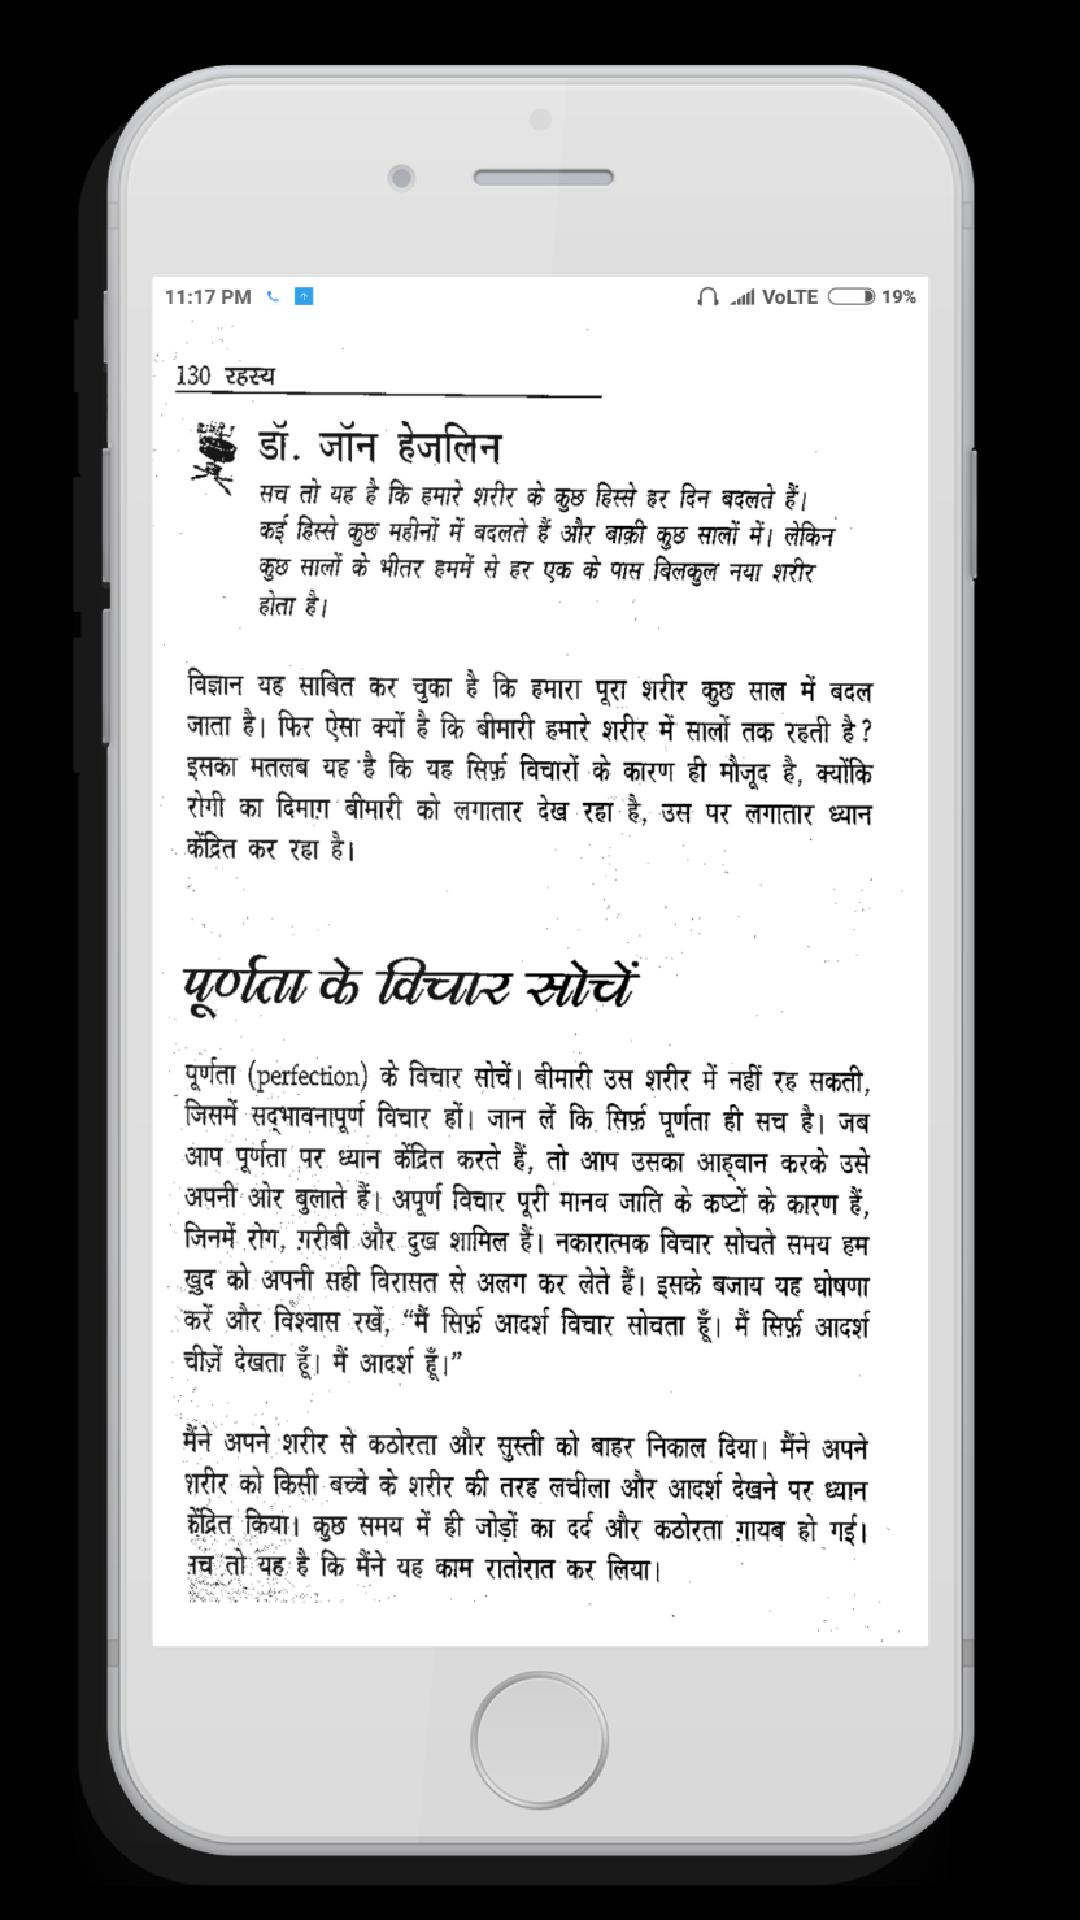 11:17 PM
VoLTE 19%
130 रहस्य
डॉ. जॉन हेजलिन
सच तो यह है कि हमारे शरीर के कुछ हिस्से हर दिन बदलते हैं।
कई हिस्से कुछ महीनों में बदलते हैं और बाक़ी कुछ सालों में। लेकिन
कुछ सालों के भीतर हममें से हर एक के पास बिलकुल नया शरीर
होता है।
विज्ञान यह साबित कर चुका है कि हमारा पूरा शरीर कुछ साल में बदल
जाता है। फिर ऐसा क्यों है कि बीमारी हमारे शरीर में सालों तक रहती है?
इसका मतलब यह है कि यह सिर्फ़ विचारों के कारण ही मौजूद है, क्योंकि
रोगी का दिमाग़ बीमारी को लगातार देख रहा है, उस पर लगातार ध्यान
केंद्रित कर रहा है।
पूर्णता के विचार सोचें
पूर्णता (perfection) के विचार सोचें। बीमारी उस शरीर में नहीं रह सकती,
जिसमें सद्‌भावनापूर्ण विचार हों। जान लें कि सिर्फ़ पूर्णता ही सच है। जब
आप पूर्णता पर ध्यान केंद्रित करते हैं, तो आप उसका आह्‌वान करके उसे
अपनी ओर बुलाते हैं। अपूर्ण विचार पूरी मानव जाति के कष्टों के कारण हैं,
जिनमें रोग, ग़रीबी और दुख शामिल हैं। नकारात्मक विचार सोचते समय हम
ख़ुद को अपनी सही विरासत से अलग कर लेते हैं। इसके बजाय यह घोषणा
करें और विश्वास रखें, “मैं सिर्फ़ आदर्श विचार सोचता हूँ। मैं सिर्फ़ आदर्श
चीज़ें देखता हूँ। मैं आदर्श हूँ।”
मैंने अपने शरीर से कठोरता और सुस्ती को बाहर निकाल दिया। मैंने अपने
शरीर को किसी बच्चे के शरीर की तरह लचीला और आदर्श देखने पर ध्यान
केंद्रित किया। कुछ समय में ही जोड़ों का दर्द और कठोरता ग़ायब हो गई।
सच तो यह है कि मैंने यह काम रातोरात कर लिया।